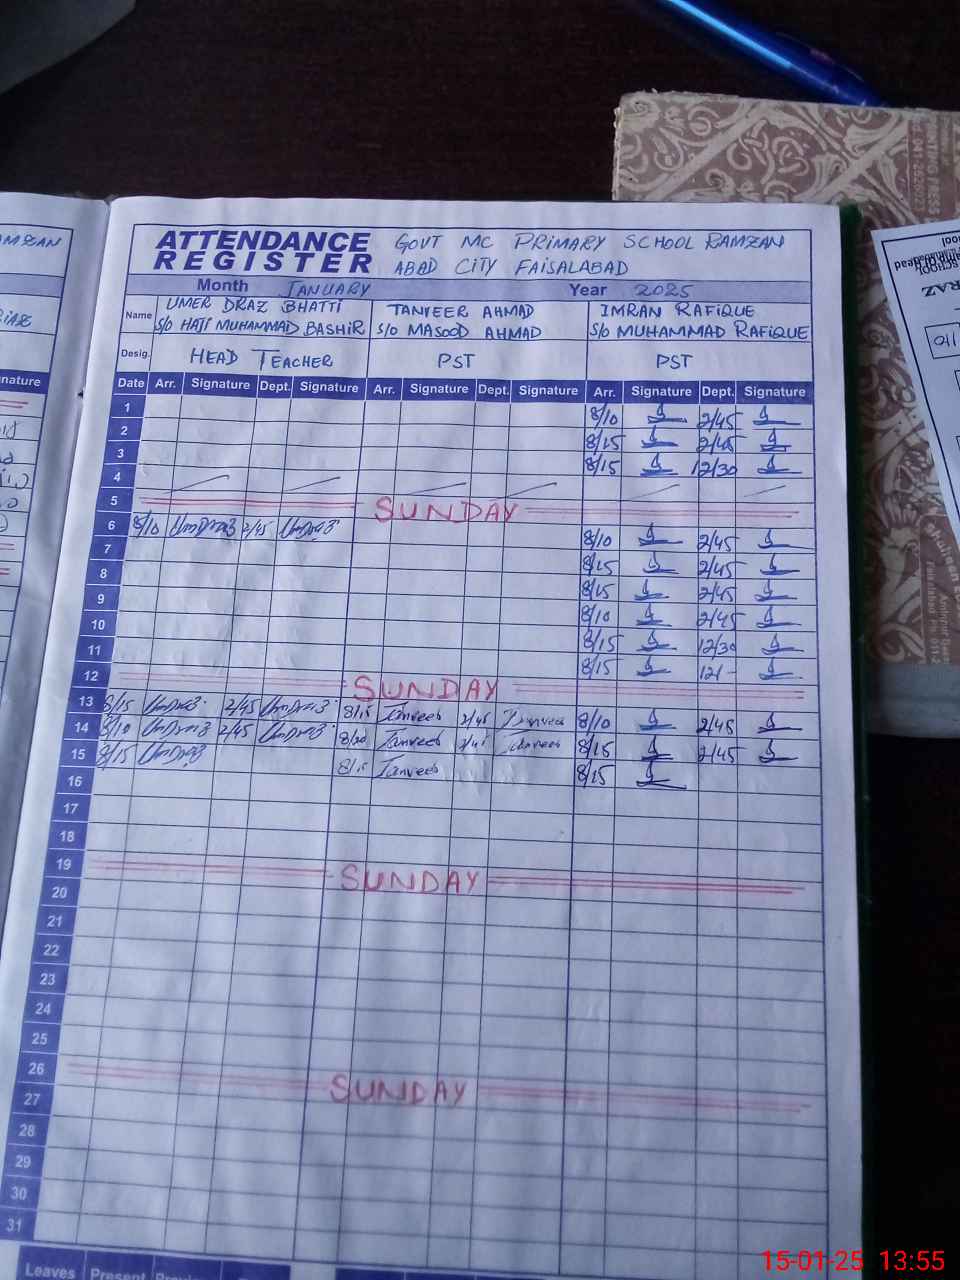 ATTENDANCE REGISTER GOVT MC PRIMARY SCHOOL RAMZAN
ABAD CITY FAISALABAD
Month JANUARY Year 2025
Name UMER DRAZ BHATTI S/O HAJI MUHAMMAD BASHIR TANVEER AHMAD S/O MASOOD AHMAD IMRAN RAFIQUE S/O MUHAMMAD RAFIQUE
Desig. HEAD TEACHER PST PST
Date Arr. Signature Dept. Signature Arr. Signature Dept. Signature Arr. Signature Dept. Signature
1 8/10 2/45
2 8/15 2/45
3 8/15 12/30
4
5 SUNDAY
6 8/10 2/45 8/10 2/45
7 8/15 2/45
8 8/15 2/45
9 8/10 2/45
10 8/15 12/30
11 8/15 12/-
12 SUNDAY
13 8/15 2/45 8/15 Tanveer 2/45 Tanveer 8/10 2/45
14 8/10 2/45 8/20 Tanveer 2/45 Tanveer 8/15 2/45
15 8/15 8/15 Tanveer 8/15
16
17
18
19 SUNDAY
20
21
22
23
24
25
26 SUNDAY
27
28
29
30
31
Leaves Present
15-01-25 13:55